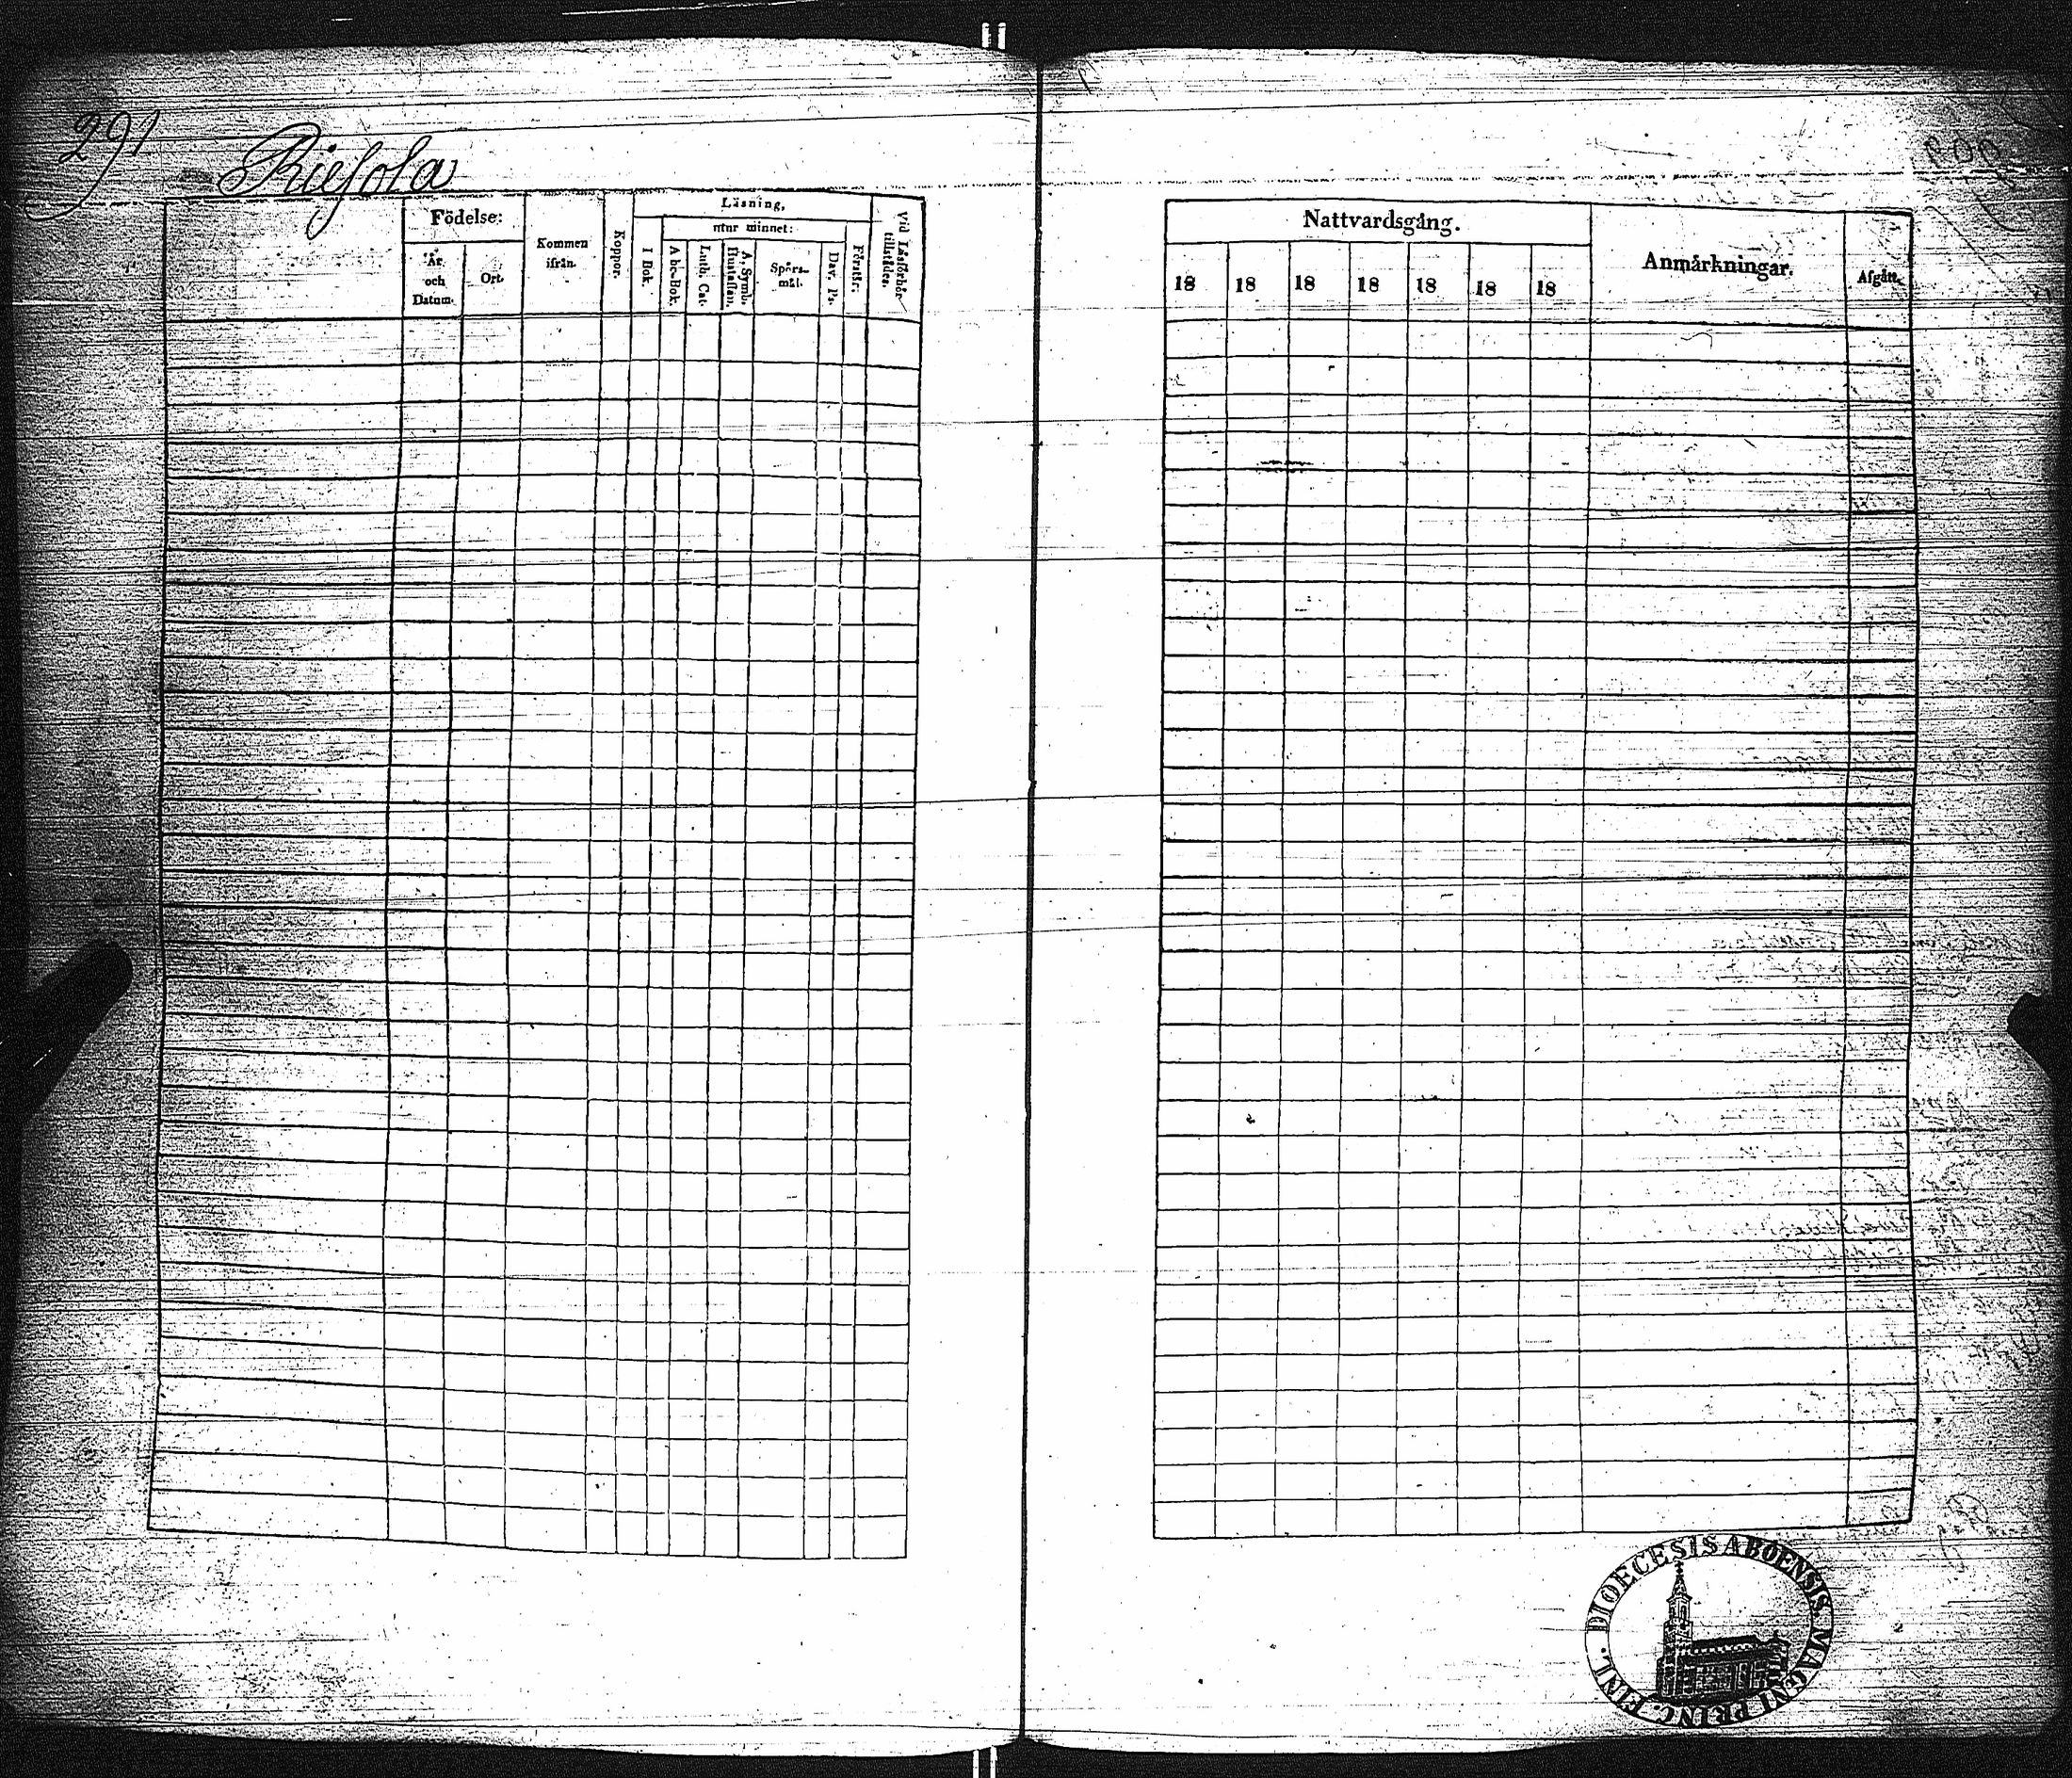 291
Riesola
Födelse:
År och Datum.
Ort.
Kommen ifrån.
Koppor.
Läsning,
I Bok.
utur minnet:
Abc-Bok.
Luth. Cat.
A. Symb.
Spörs-
mål.
Dav. Ps.
Förstår.
Vid Läsförhör
tillstädes.
Nattvardsgång.
18 18 18 18 18 18 18
Anmärkningar.
Afgått.
DIOECESIS ABOENSIS. MAGNI PRINC. FINL.